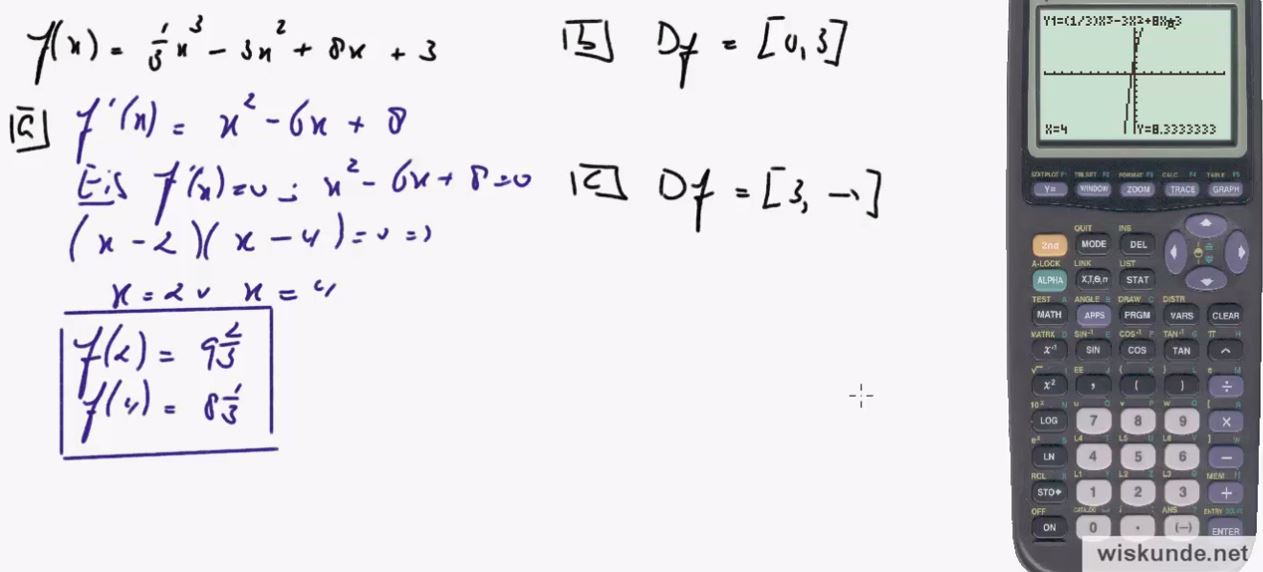 f(x) = 1/3 x³ - 3x² + 8x + 3
a f'(x) = x² - 6x + 8
Eis f'(x)=0 : x² - 6x + 8=0
(x - 2)(x - 4)=0 =>
x = 2 v x = 4
f(2) = 9 2/3
f(4) = 8 1/3
b Df = [0, 3]
c Df = [3, →]
Y1=(1/3)X^3-3X²+8X+3
X=4 Y=8.3333333
STAT PLOT F1 TBLSET F2 FORMAT F3 CALC F4 TABLE F5
Y= WINDOW ZOOM TRACE GRAPH
QUIT INS
2nd MODE DEL
A-LOCK LINK LIST
ALPHA X,T,θ,n STAT
TEST A ANGLE B DRAW C DISTR
MATH APPS PRGM VARS CLEAR
MATRX D SIN⁻¹ E COS⁻¹ F TAN⁻¹ G π H
x⁻¹ SIN COS TAN ^
√ I EE J { K } L e M
x² , ( ) ÷
10ˣ N u O v P w Q [ R
LOG 7 8 9 X
eˣ S L4 T L5 U L6 V ] W
LN 4 5 6 −
RCL X L1 Y L2 Z L3 θ MEM "
STO➔ 1 2 3 +
OFF CATALOG i : ANS ? ENTRY SOLVE
ON 0 . (−) ENTER
wiskunde.net